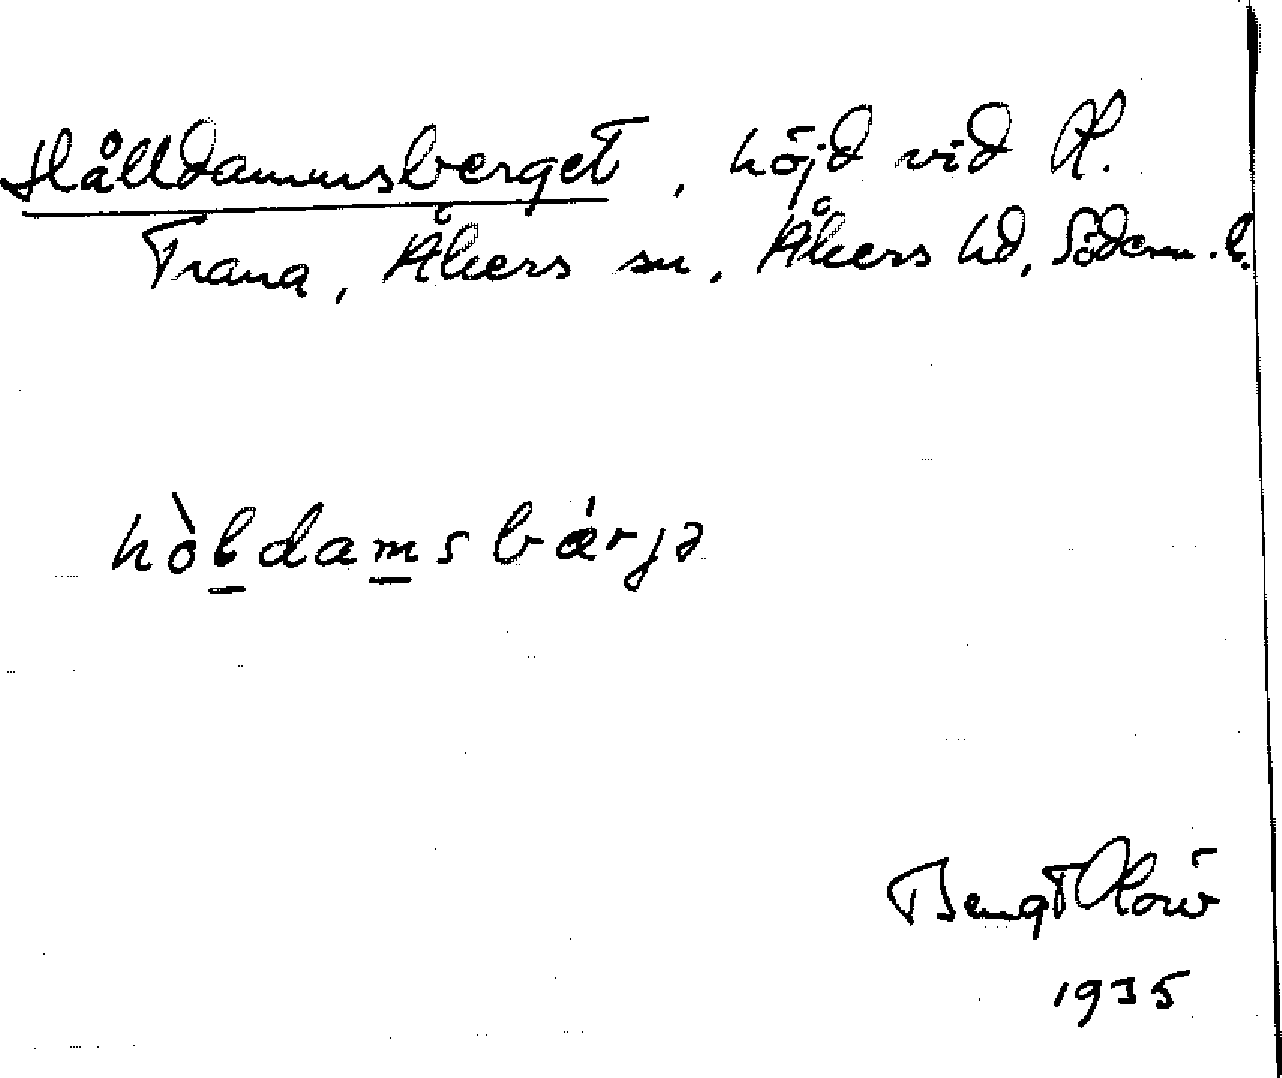 Hålldammsberget, höjd vid St.
Trana, Åkers sn, Åkers hd, Söderm. l.
hòldamsbǽrjə
Bengt
1935